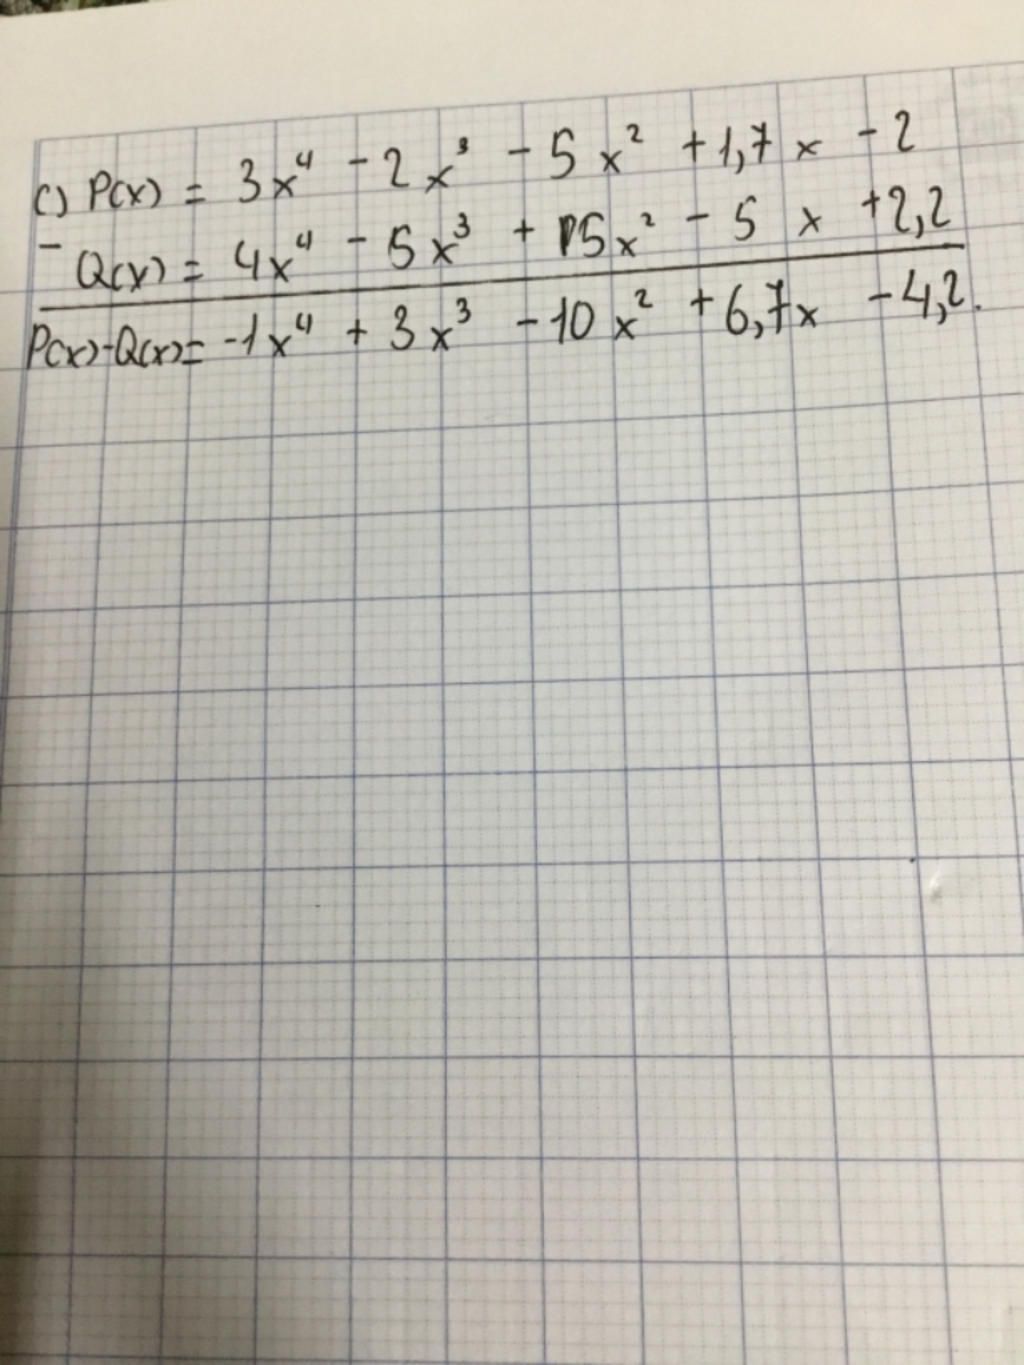 c) P(x) = 3x⁴ - 2x³ - 5x² + 1,7x - 2
- Q(x) = 4x⁴ - 5x³ + 5x² - 5x + 2,2
P(x)-Q(x)= -1x⁴ + 3x³ - 10x² + 6,7x - 4,2.